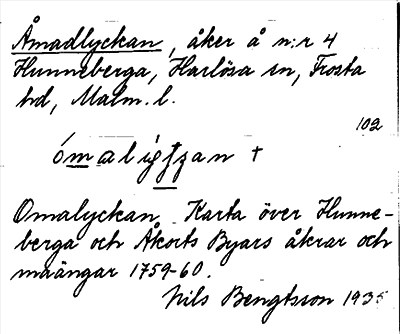 Åmadlyckan, åker å n:r 4
Hunneberga, Harlösa sn, Frosta
hd, Malm. l.
102
Omalyckan Karta över Hunne-
berga och Åkorts Byars åkrar och
maängar 1759-60.
Nils Bengtsson 1935